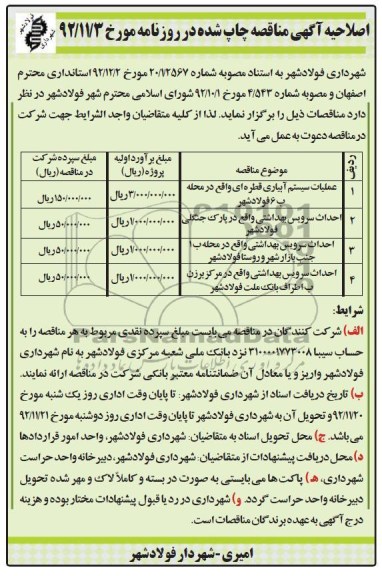 اصلاحیه آگهی مناقصه چاپ شده در روزنامه مورخ ۹۲/۱۱/۳
شهرداری فولادشهر به استناد مصوبه شماره ۲۰/۱۳۵۶۷ مورخ ۹۲/۱۲/۲ استانداری محترم
اصفهان و مصوبه شماره ۴/۵۴۳ مورخ ۹۲/۱۰/۱ شورای اسلامی محترم شهر فولادشهر در نظر
دارد مناقصات ذیل را برگزار نماید. لذا از کلیه متقاضیان واجد الشرایط جهت شرکت
در مناقصه دعوت به عمل می آید.
ردیف موضوع مناقصه مبلغ برآورد اولیه پروژه (ریال) مبلغ سپرده شرکت در مناقصه (ریال)
۱ عملیات سیستم آبیاری قطره ای واقع در محله ب ۶ فولادشهر ۳/۰۰۰/۰۰۰/۰۰۰ریال ۱۵۰/۰۰۰/۰۰۰ریال
۲ احداث سرویس بهداشتی واقع در پارک جنگلی فولادشهر ۱/۰۰۰/۰۰۰/۰۰۰ریال ۵۰/۰۰۰/۰۰۰ریال
۳ احداث سرویس بهداشتی واقع در محله ب۱ جنب بازار شهر و روستا فولادشهر ۱/۰۰۰/۰۰۰/۰۰۰ریال ۵۰/۰۰۰/۰۰۰ریال
۴ احداث سرویس بهداشتی واقع در مرکز برزن ب اطراف بانک ملت فولادشهر ۱/۰۰۰/۰۰۰/۰۰۰ریال ۵۰/۰۰۰/۰۰۰ریال
شرایط:
الف) شرکت کنندگان در مناقصه می بایست مبلغ سپرده نقدی مربوط به هر مناقصه را به
حساب سیبا ۳۱۰۰۰۰۱۷۷۳۰۰۸ نزد بانک ملی شعبه مرکزی فولادشهر به نام شهرداری
فولادشهر واریز و یا معادل آن ضمانتنامه معتبر بانکی شرکت در مناقصه ارائه نمایند.
ب) تاریخ دریافت اسناد از شهرداری فولادشهر: تا پایان وقت اداری روز یک شنبه مورخ
۹۲/۱۱/۲۰ و تحویل آن به شهرداری فولادشهر تا پایان وقت اداری روز دوشنبه مورخ ۹۲/۱۱/۲۱
می باشد. ج) محل تحویل اسناد به متقاضیان: شهرداری فولادشهر، واحد امور قراردادها
د) محل دریافت پیشنهادات از متقاضیان: شهرداری فولادشهر، دبیرخانه واحد حراست
شهرداری، هـ) پاکت ها می بایستی به صورت در بسته و کاملاً لاک و مهر شده تحویل
دبیرخانه واحد حراست گردد. و) شهرداری در رد یا قبول پیشنهادات مختار بوده و هزینه
درج آگهی به عهده برندگان مناقصات است.
امیری - شهردار فولادشهر